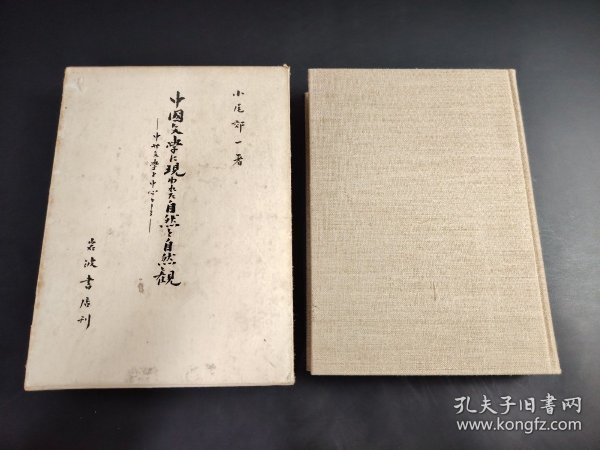 小尾郊一著
中国文学に現われた自然と自然観
―中世文学を中心として―
岩波書店刊
孔夫子旧书网
www.kongfz.com